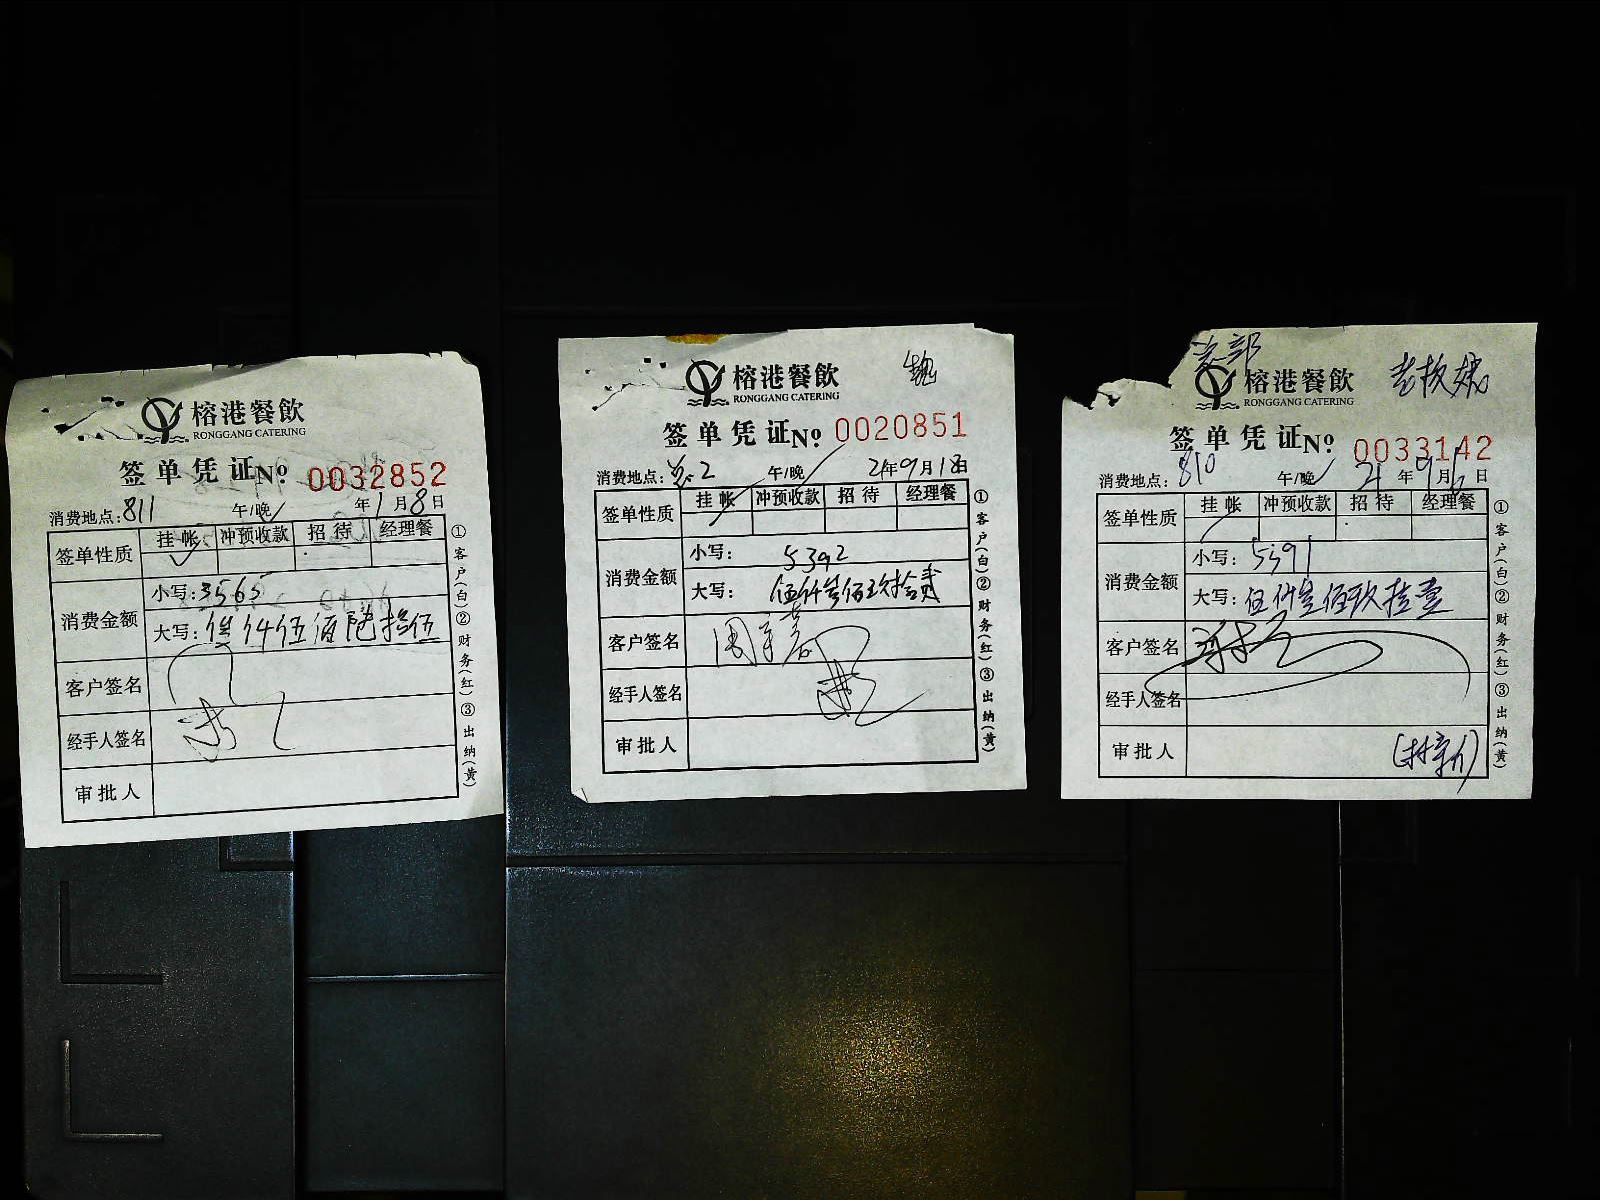 榕港餐飲
RONGGANG CATERING
签单凭证№ 0032852
消费地点:811 午/晚 年1月8日
签单性质 挂帐 冲预收款 招待 经理餐
消费金额
小写:3565
大写: 仟伍佰陆拾伍
客户签名
经手人签名
审批人
①客户(白)②财务(红)③出纳(黄)
榕港餐飲
RONGGANG CATERING
签单凭证№ 0020851
消费地点: 2 午/晚 21年9月18日
签单性质 挂帐 冲预收款 招待 经理餐
消费金额
小写: 5392
大写: 伍仟叁佰玖拾贰
客户签名
经手人签名
审批人
①客户(白)②财务(红)③出纳(黄)
总部
老板娘
榕港餐飲
RONGGANG CATERING
签单凭证№ 0033142
消费地点: 810 午/晚 21年9月 日
签单性质 挂帐 冲预收款 招待 经理餐
消费金额
小写:
大写: 伍仟 佰玖拾壹
客户签名
经手人签名
审批人
①客户(白)②财务(红)③出纳(黄)